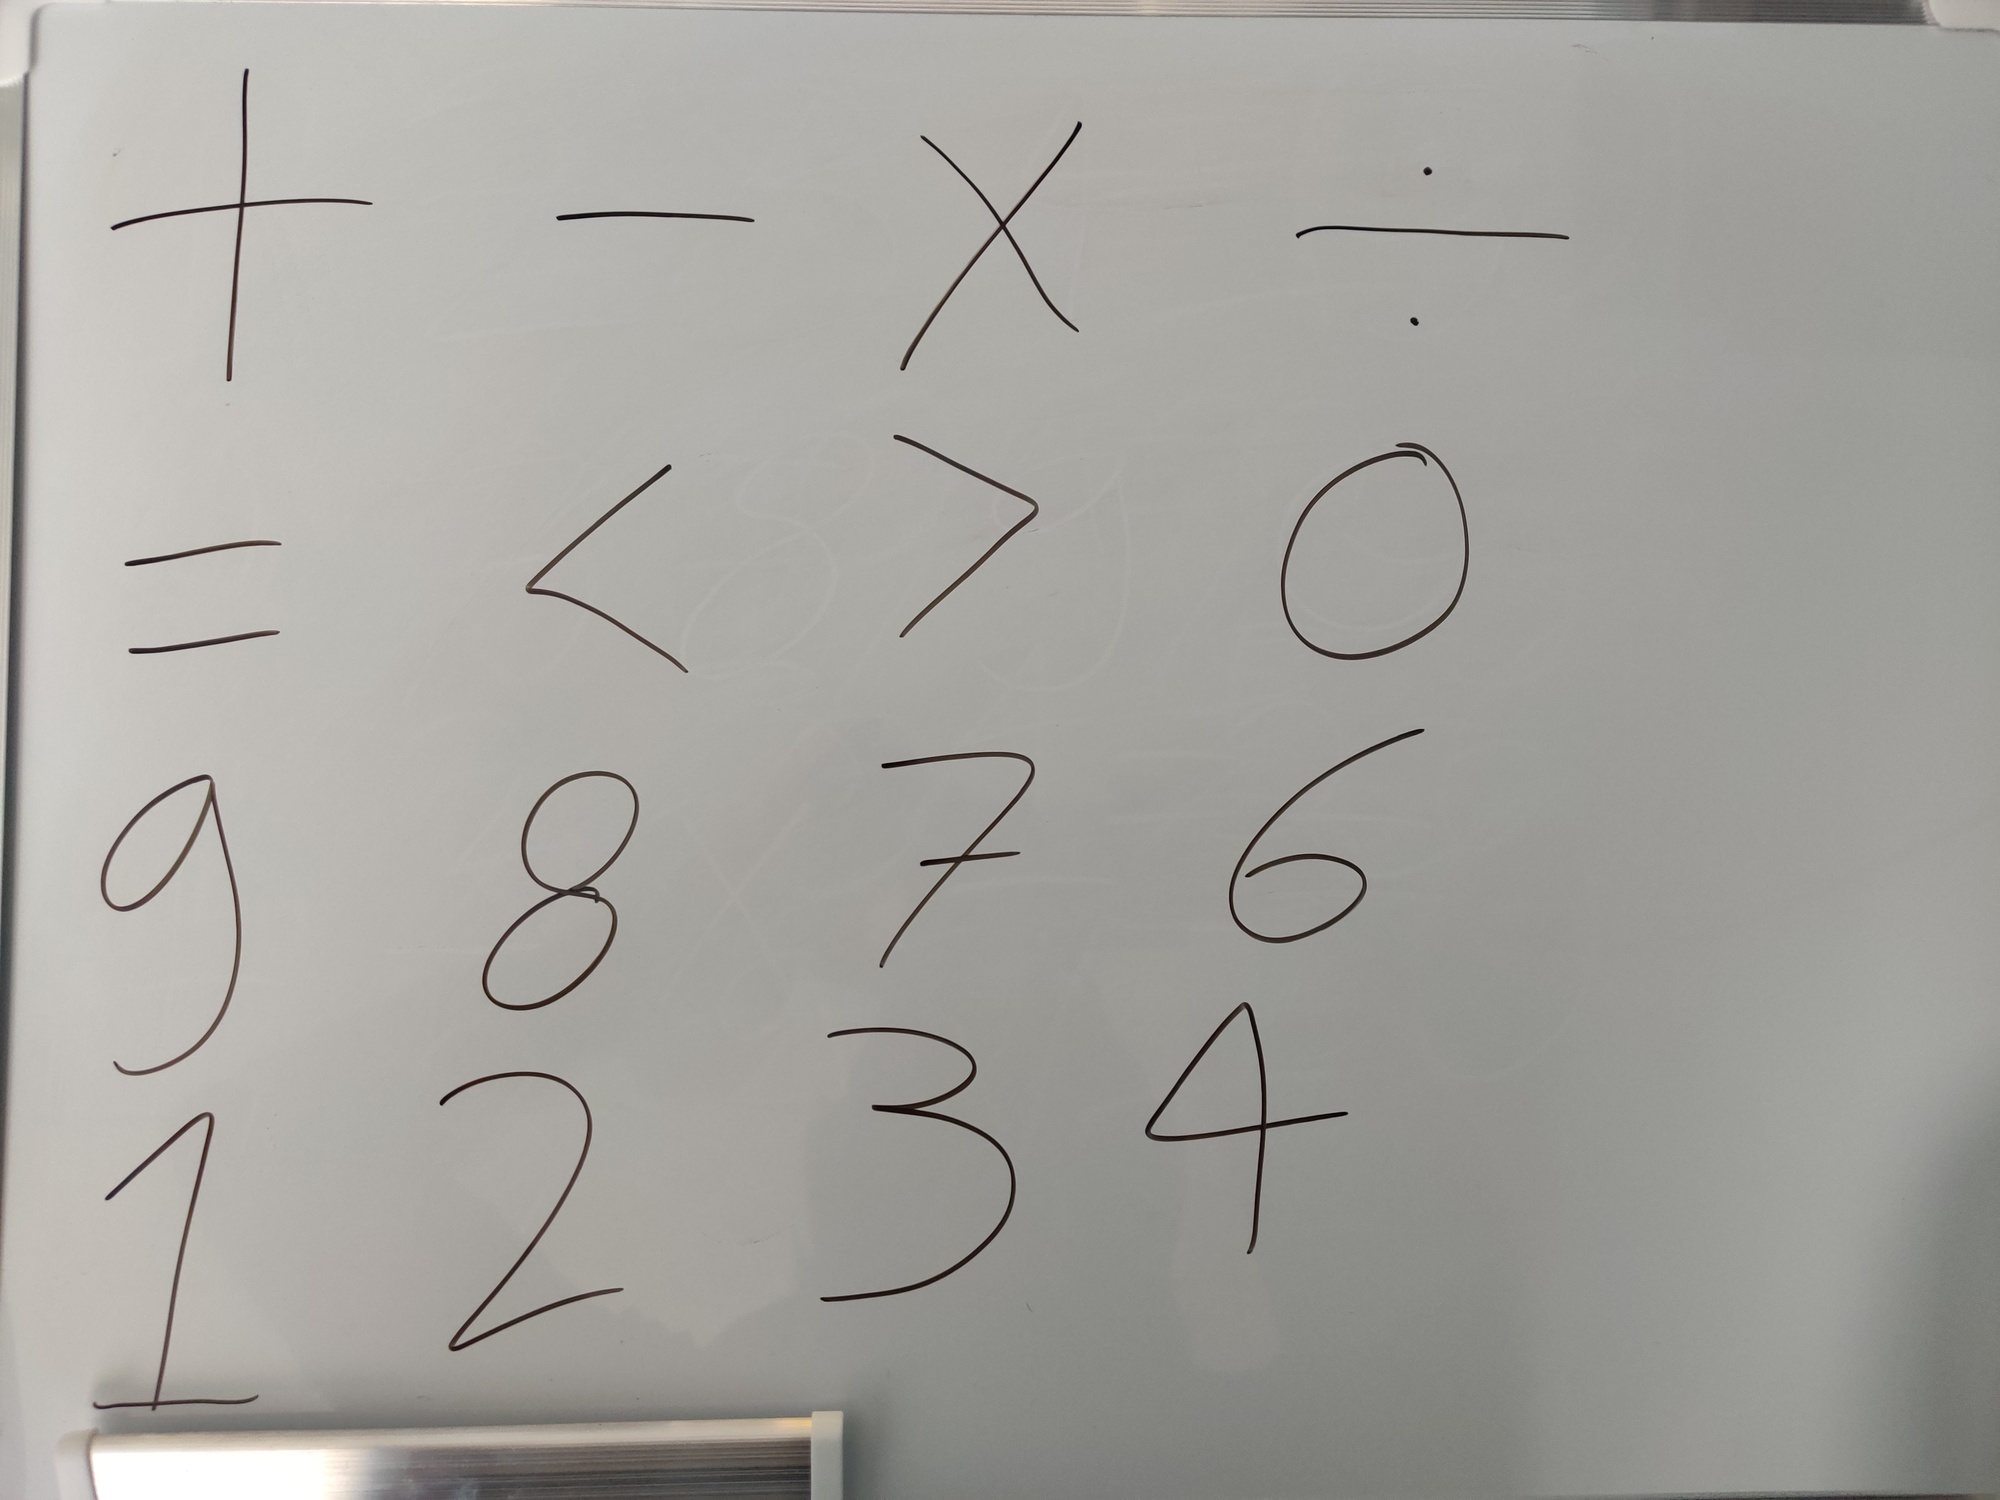 + − × ÷
= < > 0
9 8 7 6
1 2 3 4